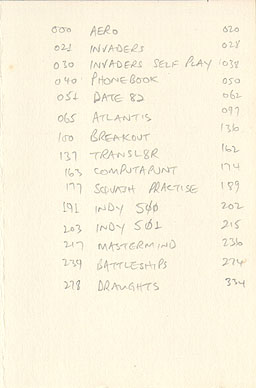 000 AERO 020
021 INVADERS 028
030 INVADERS SELF PLAY 038
040 PHONEBOOK 050
051 DATE 82 062
065 ATLANTIS 097
100 BREAKOUT 136
137 TRANSL8R 162
163 COMPUTAPUNT 174
177 SQUASH PRACTISE 189
191 INDY 500 202
203 INDY 501 215
217 MASTERMIND 236
239 BATTLESHIPS 274
278 DRAUGHTS 334